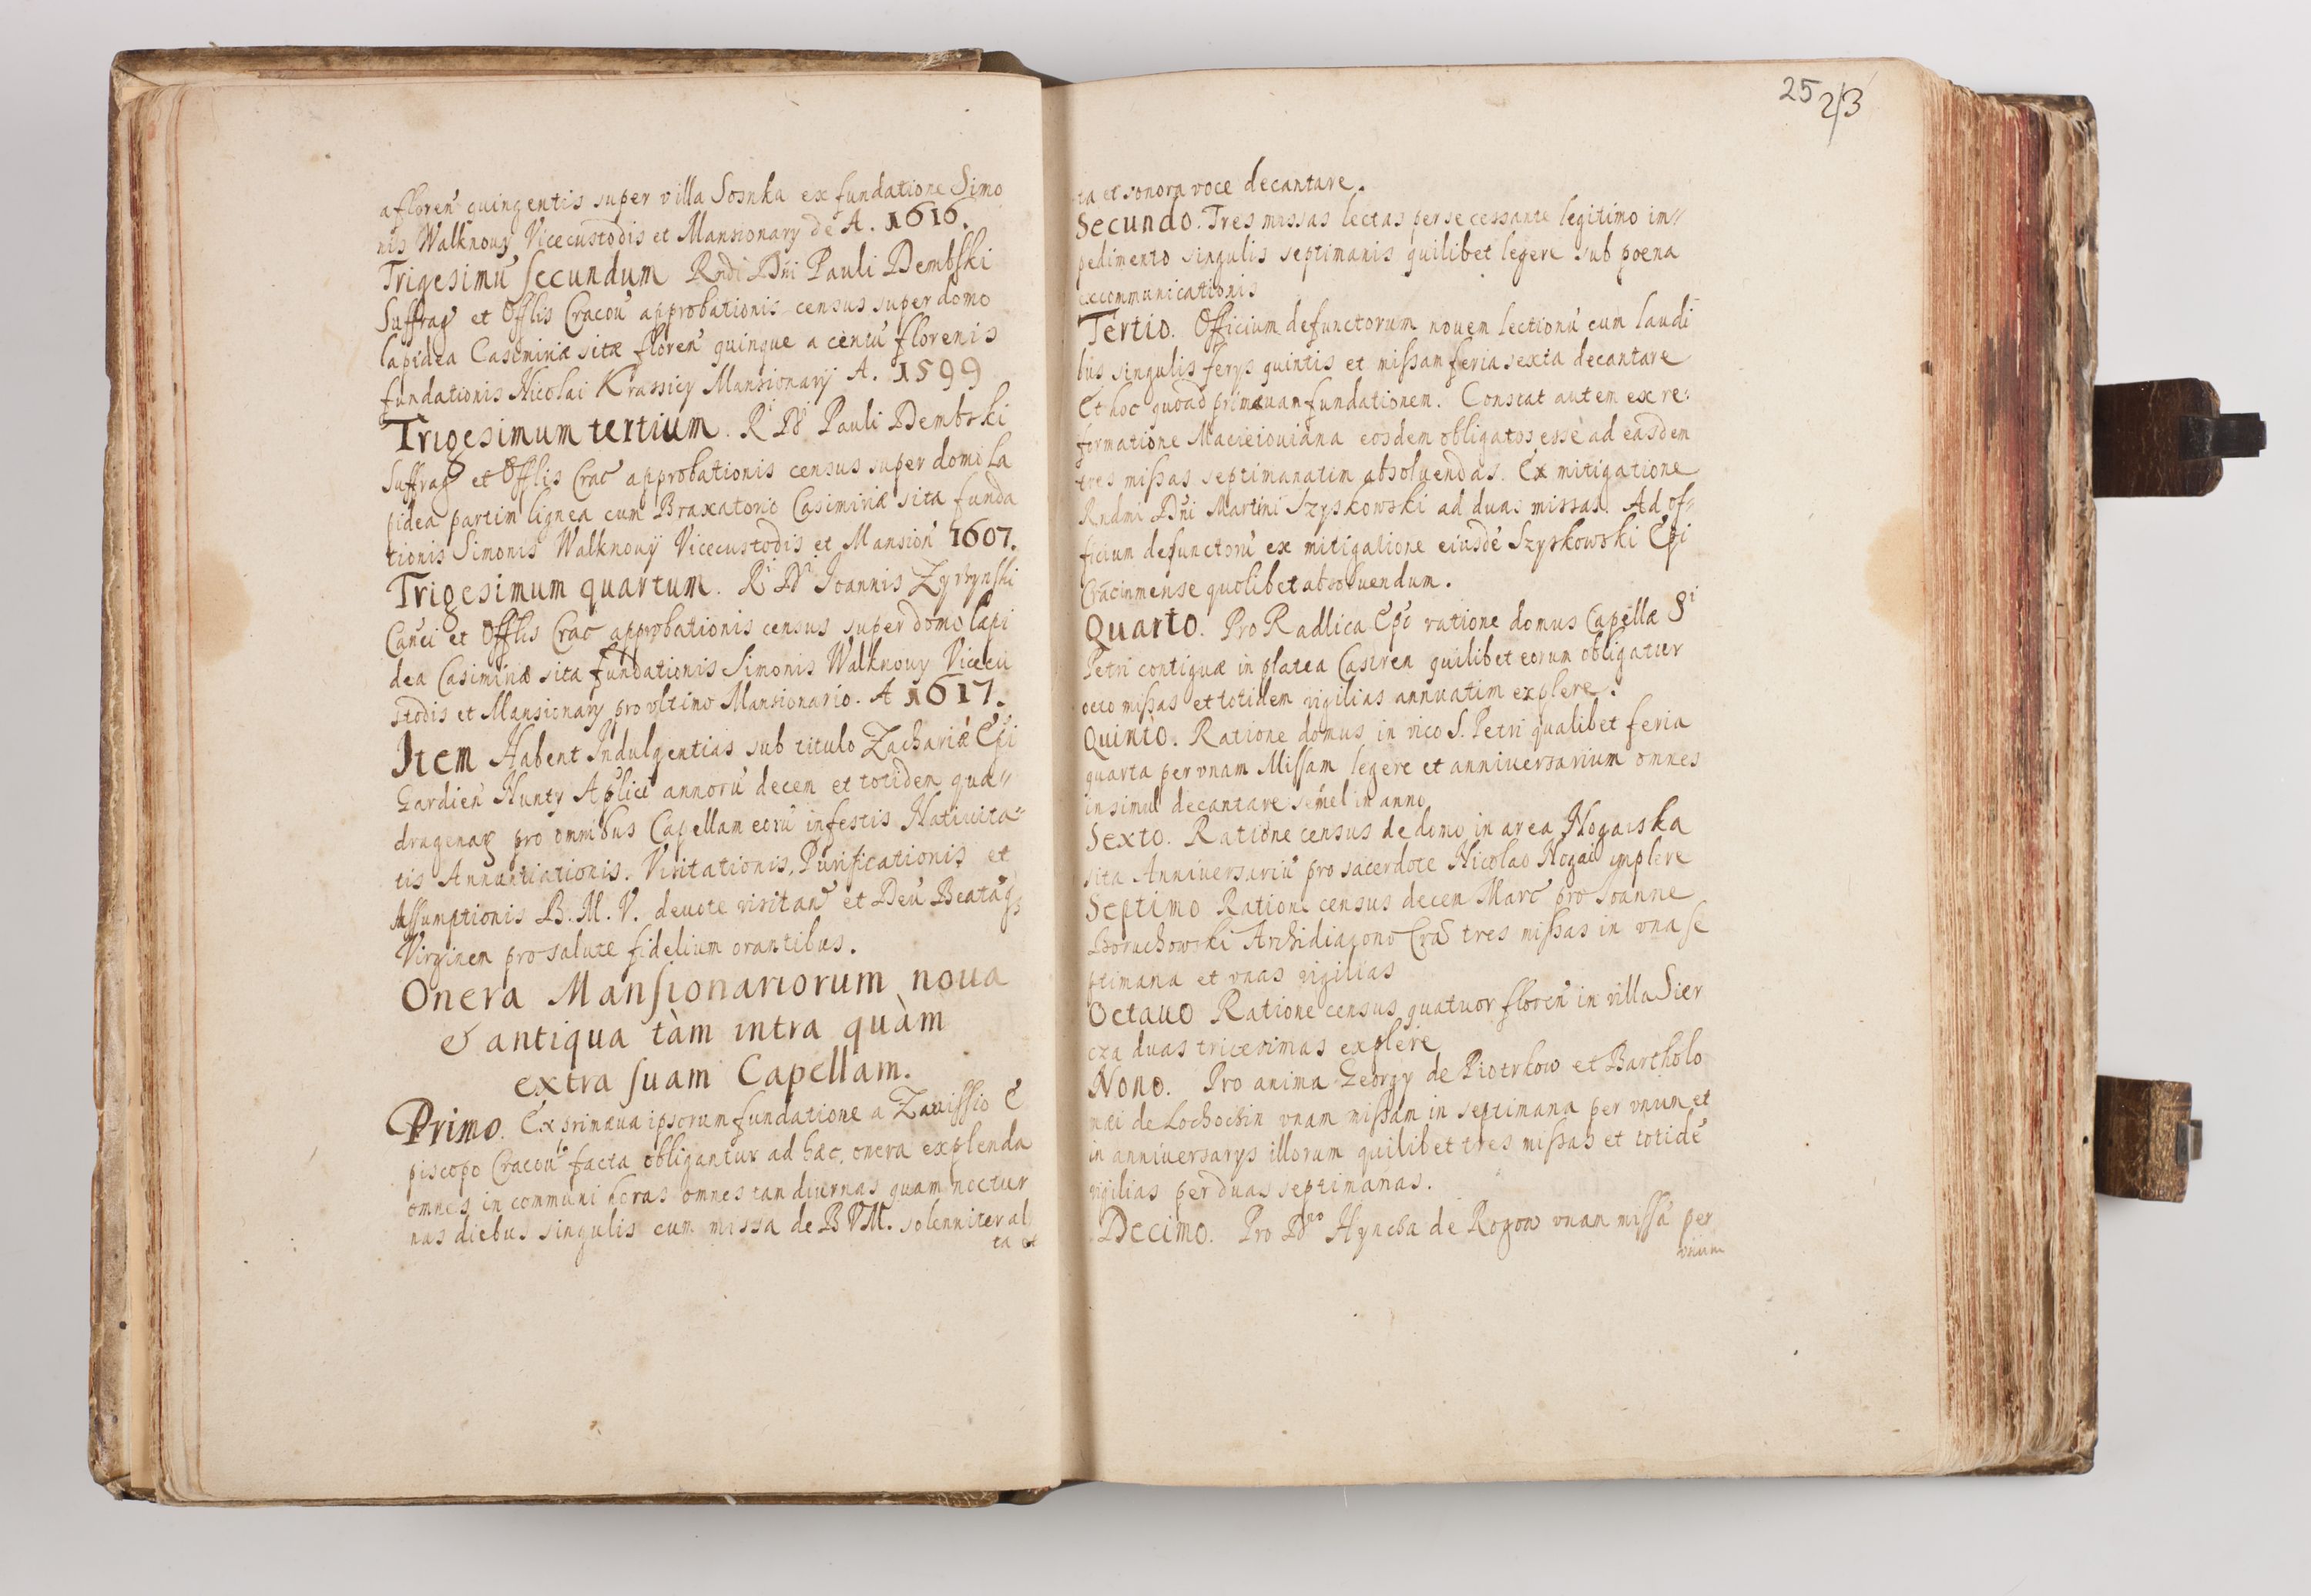 a floreñ quingentis super villa Sosnka ex fundatione Simo
nis Walknowy Vicecustodis et Mansionarÿ de A. 1616.
Trigesimū secundum Rndi Dñi Pauli Dembski
Suffrag et Offlis Cracou approbationis census super domo
lapidea Casimiriæ sitæ floreñ quinque a centū florenis
fundationis Nicolai Krassicy Mansionarÿ A. 1599
Trigesimum tertium. Ri Di Pauli Dembski
Suffrag et Offlis Crac approbationis census super domo la
pidea partim lignea cum Braxatorio Casimiriæ sita funda
tionis Simonis Walknouÿ Vicecustodis et Mansioñ 1607.
Trigesimum quartum. Ri Di Joannis
Canci et Offlis Crac approbationis census super domo lapi
dea Casimiriæ sita fundationis Simonis Walknouy Vicecu
stodis et Mansionarÿ pro vltimo Mansionario. A 1617.
Item Habent Indulgentias sub titulo Zachariæ Epi
Gardieñ Nunty Aplici annorū decem et totidem qua//
dragenar pro omnibus Capellam eorū in festis Natiuita-
tis Annuntiationis. Visitationis, Purificationis et
Assumptionis B. M. V. deuote visitañ et Deū Beatāq
Virginem pro salute fidelium orantibus.
Onera Mansionariorum noua
& antiqua tàm intra quàm
extra suam Capellam.
Primo. Ex primæua ipsorum fundatione a Zauissio E
piscopo Cracou facta obligantur ad hæc onera explenda
omnes in communi horas omnes tan diurnas quam noctur
nas diebus singulis cum missa de B V M. solenniter al
ta et
25 2/3
ta et sonora voce decantare.
Secundo. Tres missas lectas per se cessante legitimo im//
pedimento singulis septimanis quilibet legere sub poena
excommunicationis
Tertio. Officium defunctorum nouem lectionū cum laudi
bus singulis ferÿs quintis et missam feria sexta decantare
Et hoc quoad primæuam fundationem. Constat autem ex re:
formatione Macieiouiana eosdem obligatos esse ad easdem
tres missas septimanatim absoluendas. Ex mitigatione
Rndmi Dñi Martini Szyskowski ad duas missas. Ad of-
ficium defunctorū ex mitigatione eiusdē Szyskowski Epi
Crac in mense quolibet absoluendum.
Quarto. Pro Radlica Epo ratione domus Capellæ Si
Petri contiguæ in platea Castren quilibet eorum obligatur
octo missas et totidem vigilias annuatim explere.
Quinto. Ratione domus in vico S. Petri qualibet feria
quarta per vnam Missam legere et anniuersarium omnes
insimul decantare semel in anno
Sexto. Ratione census de domo in area Nogaiska
sita Anniuersariū pro sacerdote Nicolao Nogai implere
Septimo Ratione census decem Marc pro Joanne
Boruchowski Archidiacono Crac tres missas in vna se
ptimana et vnas vigilias
Octauo Ratione census quatuor floreñ in villa Sier
cza duas tricesimas explere
Nono. Pro anima Georgÿ de Piotrkow et Bartholo
mæi de Lochochin vnam missam in septimana per vnum et
in anniuersarÿs illorum quilibet tres missas et totidē
vigilias per duas septimanas.
Decimo. Pro Dno Hyncza de Rogow vnam missā per
vnum